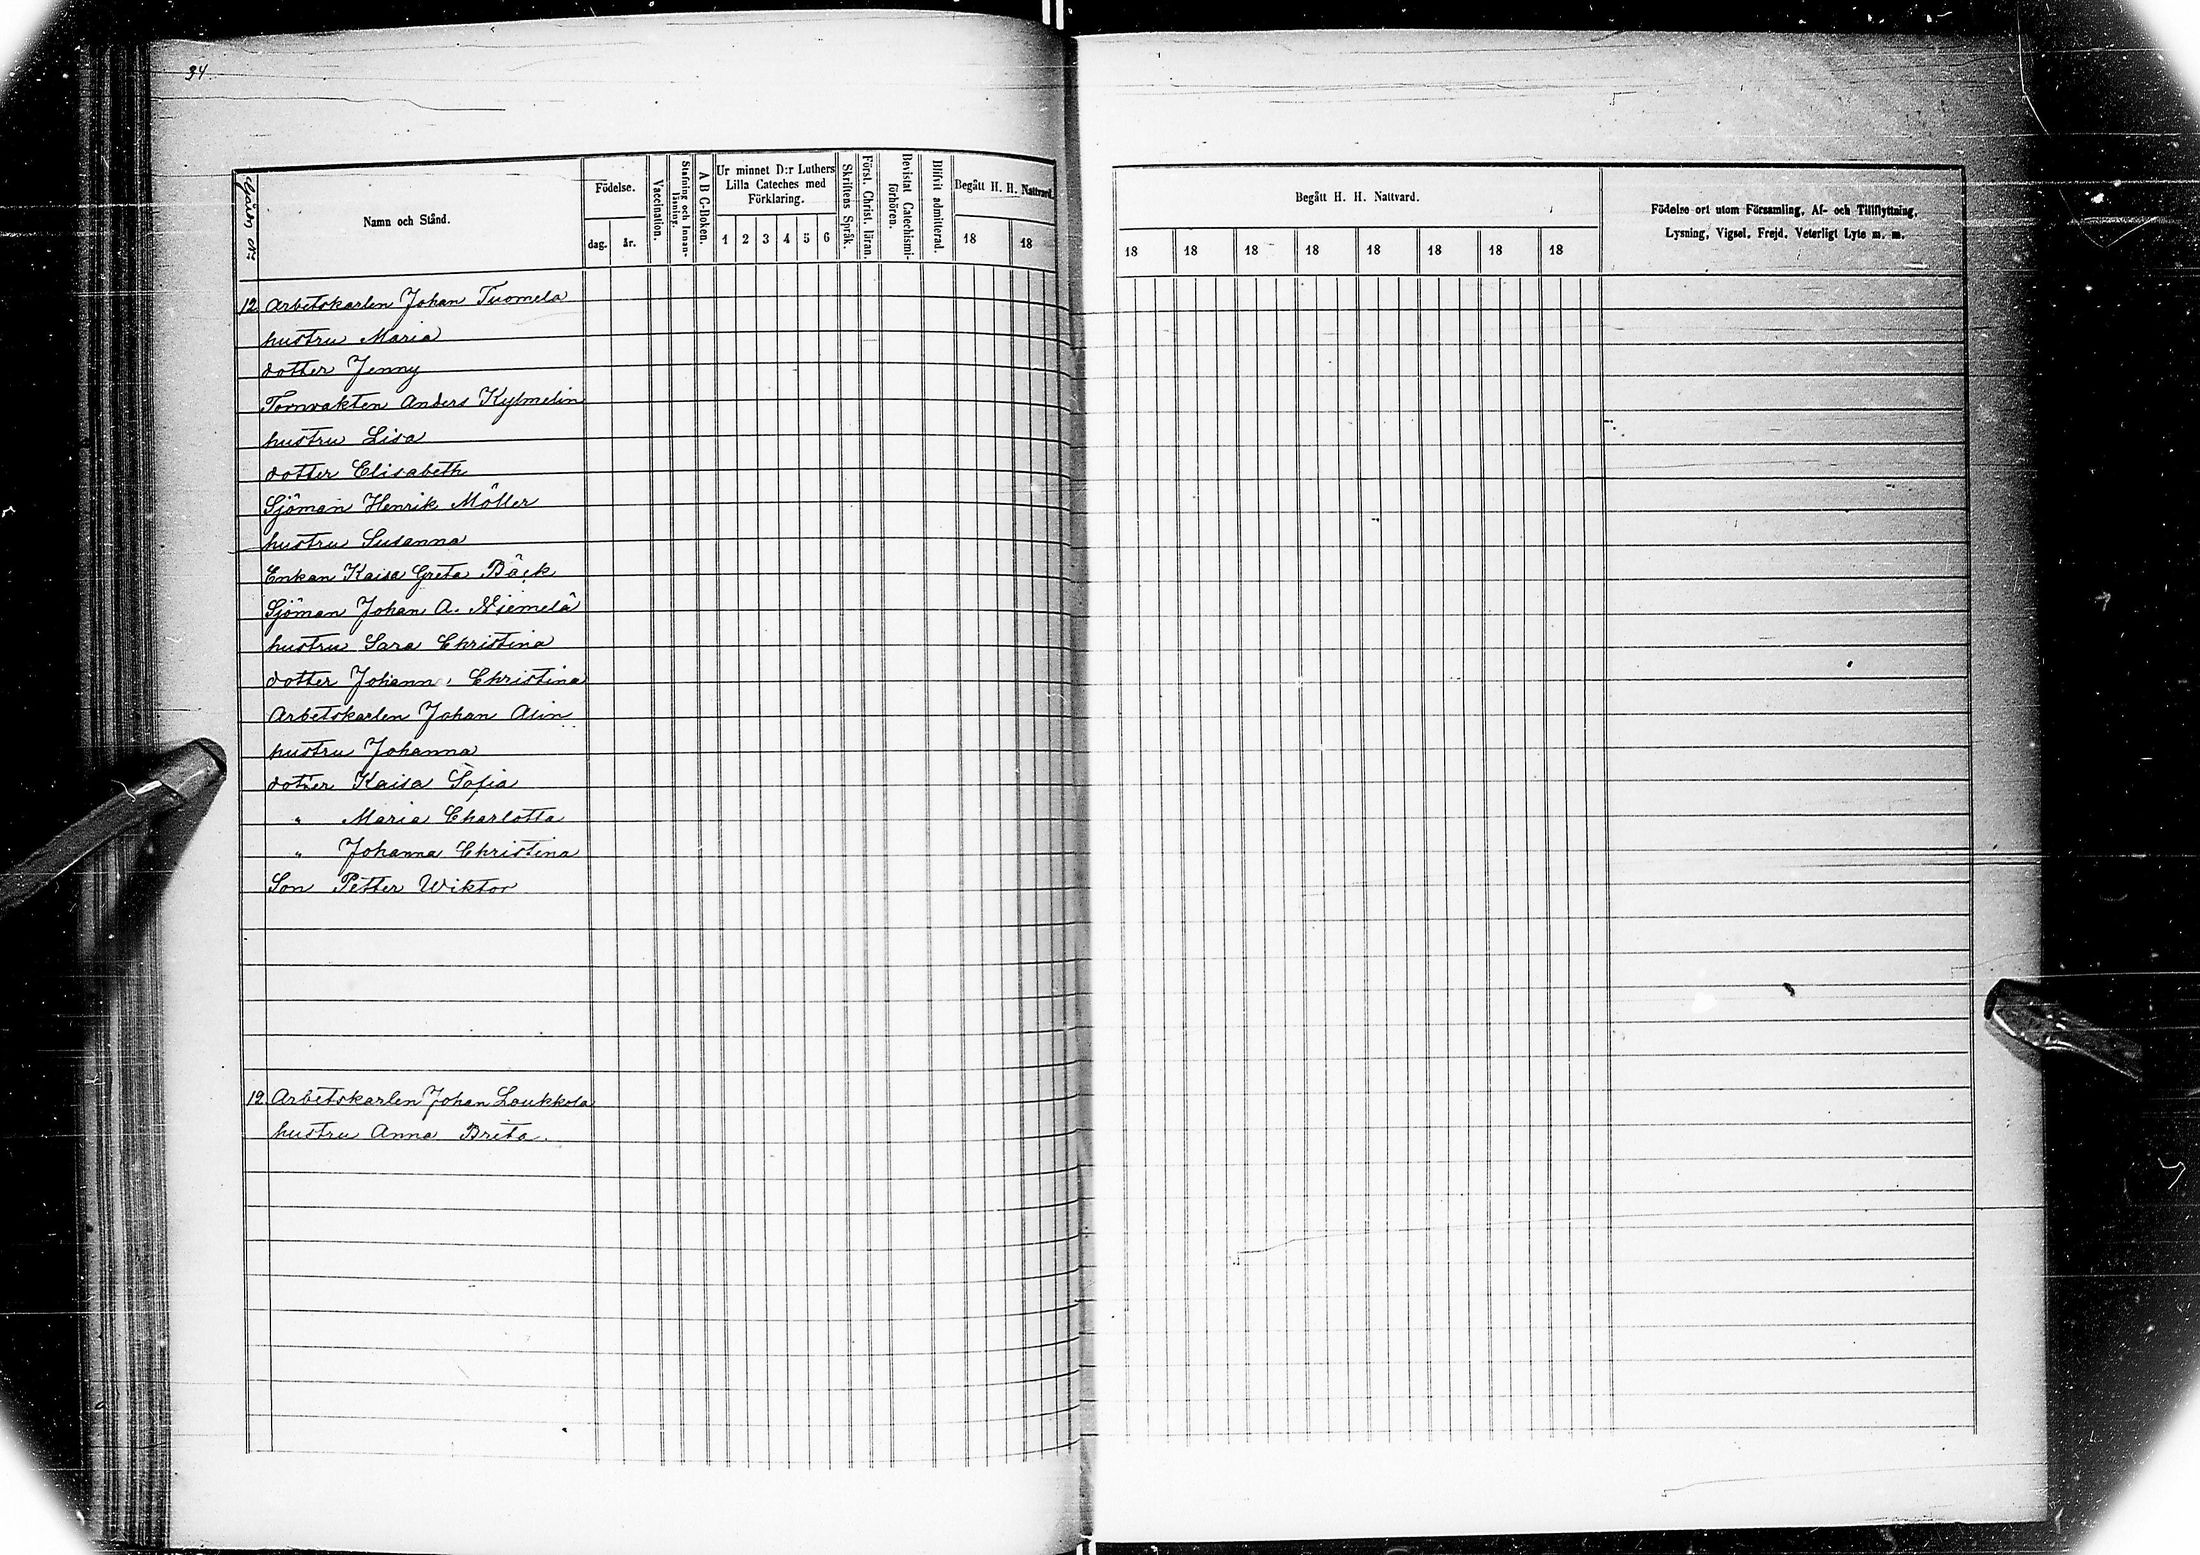 34
Gården Nº
Namn och Stånd.
Födelse.
dag.
år.
Vaccination.
Stafning och Innanläsning.
A B C-Boken.
Ur minnet D:r Luthers
Lilla Cateches med
Förklaring.
1 2 3 4 5 6
Skriftens Språk.
Först. Christ. läran.
Bevistat Catechismi-
förhören.
Blifvit admitterad.
Begått H. H. Nattvard.
18 18
12 Arbetskarlen Johan Tuomela
hustru Maria
dotter Jenny
Tornvakten Anders Kylmelin
hustru Lisa
dotter Elisabeth
Sjöman Henrik Möller
hustru Susanna
Enkan Kaisa Greta Bäck
Sjöman Johan A. Niemelä
hustru Sara Christina
dotter Johanna Christina
Arbetskarlen Johan Alin
hustru Johanna
dotter Kaisa Sofia
" Maria Charlotta
" Johanna Christina
Son Petter Wiktor
12 Arbetskarlen Johan Loukkola
hustru Anna Breta.
Begått H. H. Nattvard.
18 18 18 18 18 18 18 18
Födelse ort utom Församling, Af- och Tillflyttning,
Lysning, Vigsel, Frejd, Veterligt Lyte m. m.